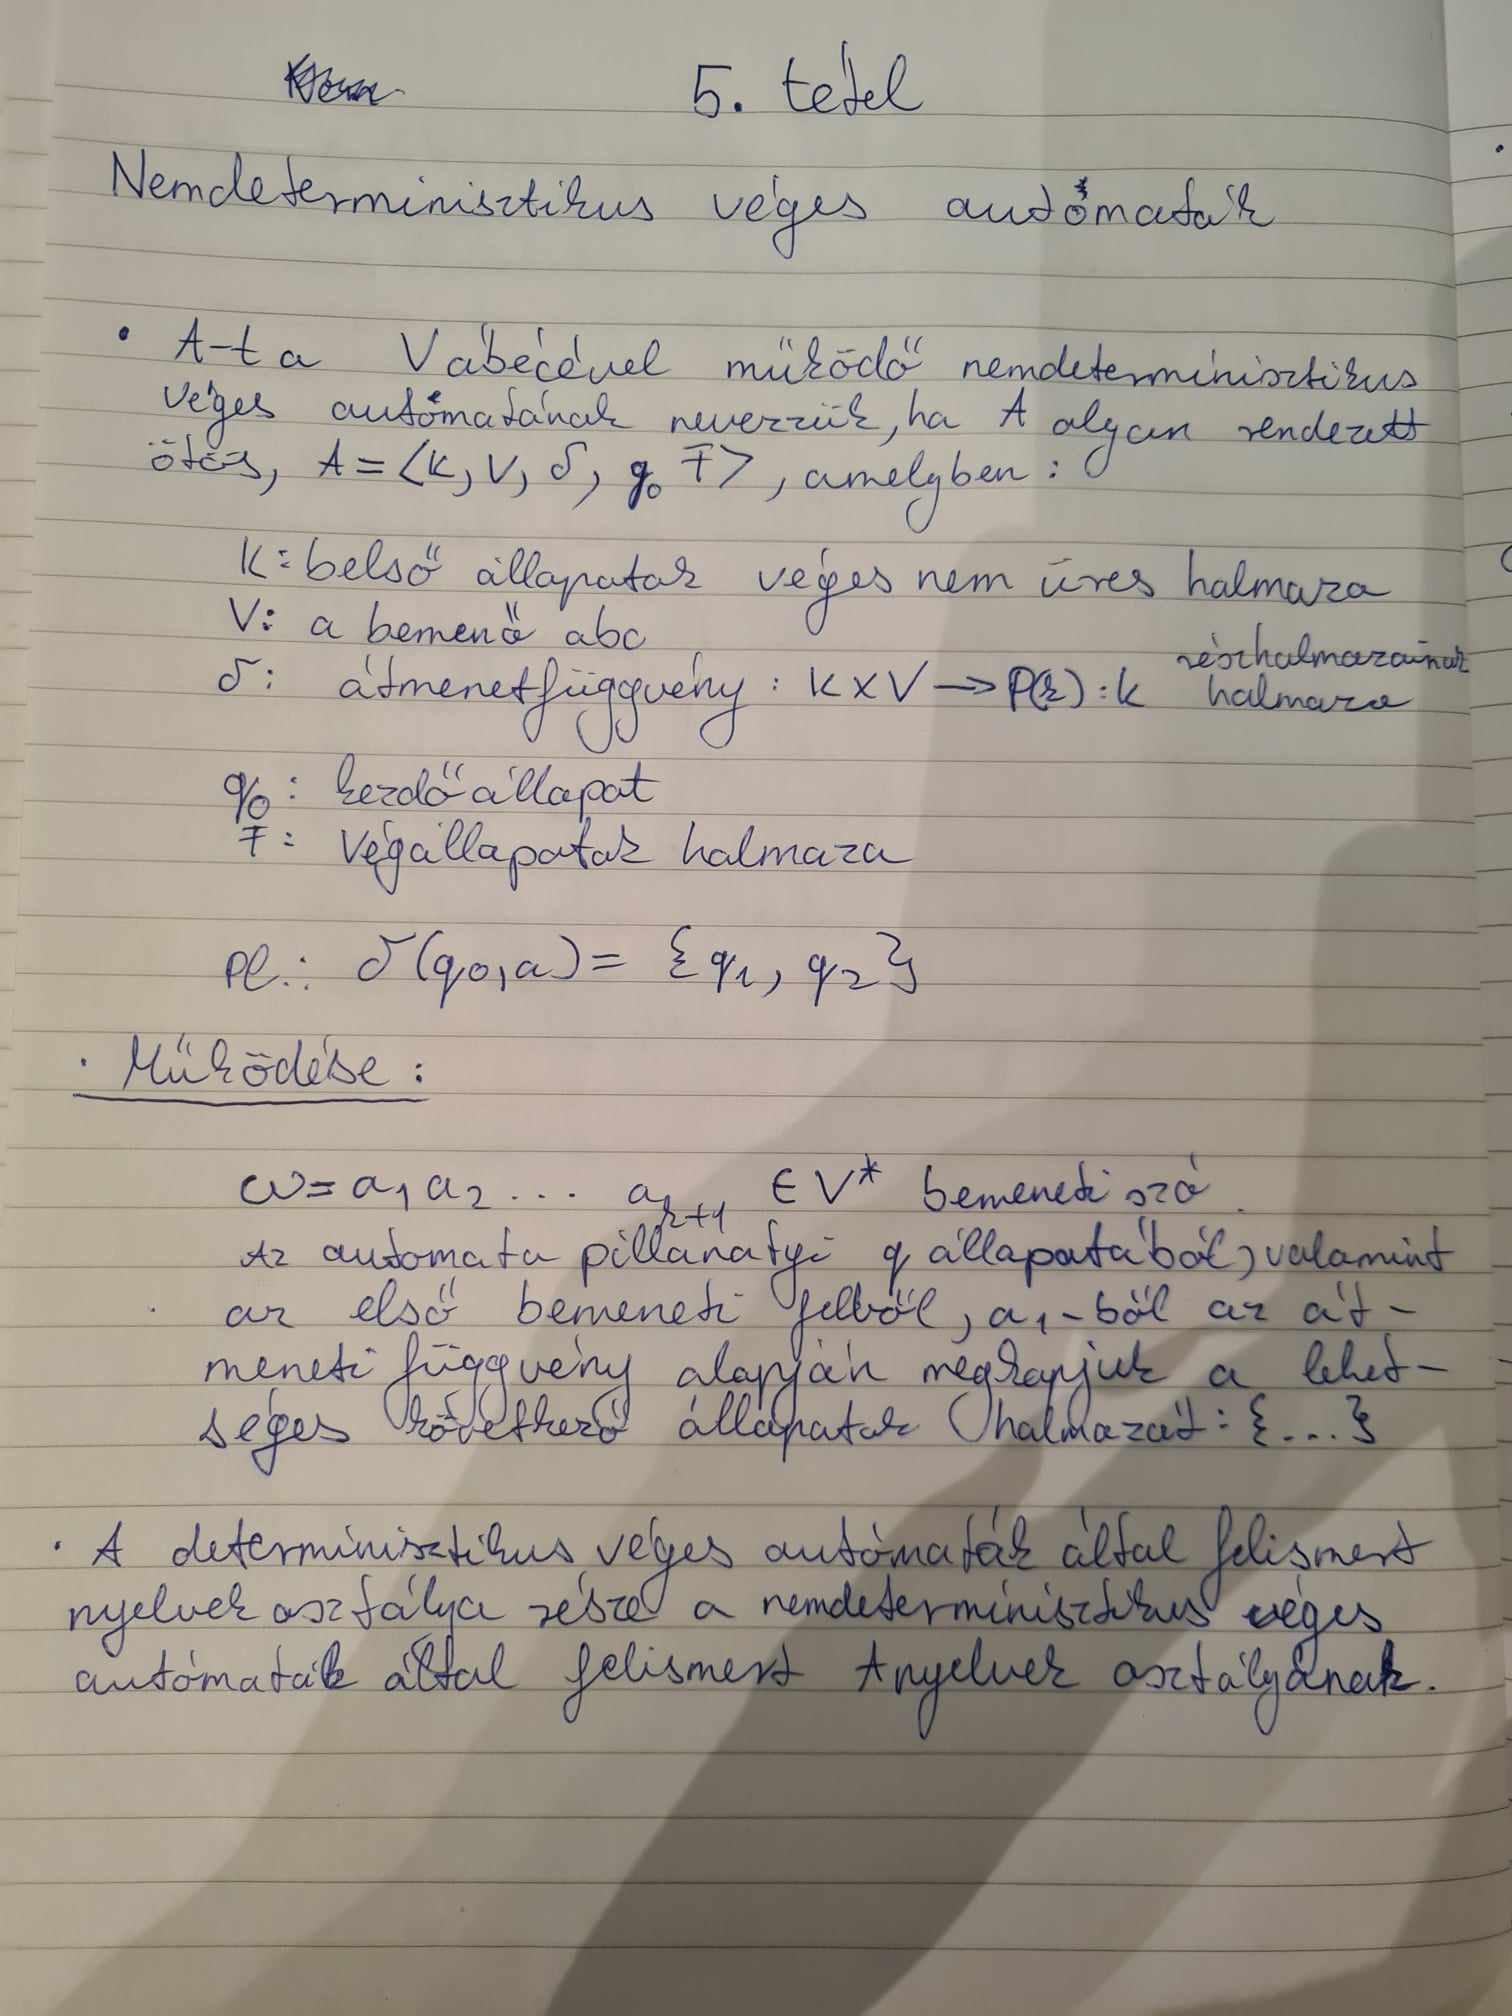 5. tétel
Nemdeterminisztikus véges autómaták
• A-t a V ábécével működő nemdeterminisztikus
véges autómatának nevezzük, ha A olyan rendezett
ötös, A = <K, V, δ, q₀ F>, amelyben:
K: belső állapotok véges nem üres halmaza
V: a bemenő abc
δ: átmenetfüggvény: K x V → P(k) : K részhalmazainak
halmaza
q₀: kezdőállapot
F: Végállapotok halmaza
Pl.: δ(q₀, a) = {q₁, q₂}
• Működése:
ω = a₁ a₂ ... aₖ₊₁ ∈ V* bemeneti szó.
Az automata pillanatyi q állapotából, valamint
az első bemeneti jelből, a₁-ből az át-
meneti függvény alapján megkapjuk a lehet-
séges következő állapotok halmazát: {...}
• A determinisztikus véges autómaták által felismert
nyelvek osztálya része a nemdeterminisztikus véges
autómaták által felismert nyelvek osztályának.